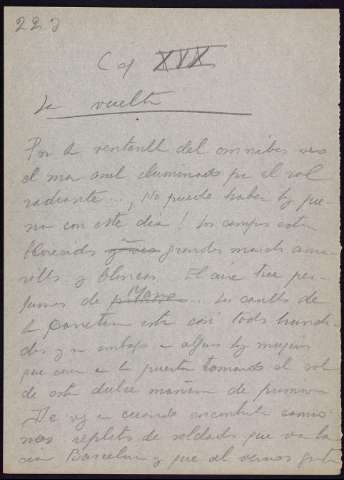 223
Cap XVX
La vuelta
Por la ventanilla del omnibus veo
el mar azul iluminado por el sol
radiante... ¡No puede haber hoy pue
na con este dia! Los campos estan
florecidos grandes manchas ama
rillas y blancas. El aire trae per-
fumes de
la carretera estan casi todas hundi
das y sin embargo en algunas hay mujeres
que cosen en la puerta tomando el sol
de esta dulce mañana de primavera
De vez en cuando encontramos camio
nes repletos de soldados que van ha
cia Barcelona y que al vernos gritan